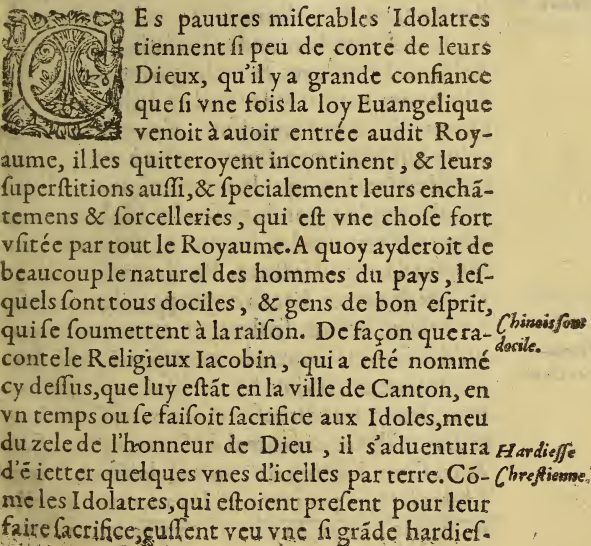 CEs pauures miſerables Idolatres
tiennent ſi peu de conte de leurs
Dieux, qu'il y a grande confiance
que ſi vne fois la loy Euangelique
venoit à auoir entrée audit Roy-
aume, il les quitteroyent incontinent, & leurs
ſuperſtitions auſſi, & ſpecialement leurs enchã-
temens & ſorcelleries, qui eſt vne choſe fort
vſitée par tout le Royaume. A quoy ayderoit de
beaucoup le naturel des hommes du pays, leſ-
quels ſont tous dociles, & gens de bon eſprit,
qui ſe ſoumettent à la raiſon. De façon que ra-
Chinois ſont
docile.
conte le Religieux Iacobin, qui a eſté nommé
cy deſſus, que luy eſtãt en la ville de Canton, en
vn temps ou ſe faiſoit ſacrifice aux Idoles, meu
du zele de l'honneur de Dieu, il s'aduentura
Hardieſſe
Chreſtienne.
d'ẽ ietter quelques vnes d'icelles par terre. Cõ-
me les Idolatres, qui eſtoient preſent pour leur
faire ſacrifice, euſſent veu vne ſi grãde hardieſ-